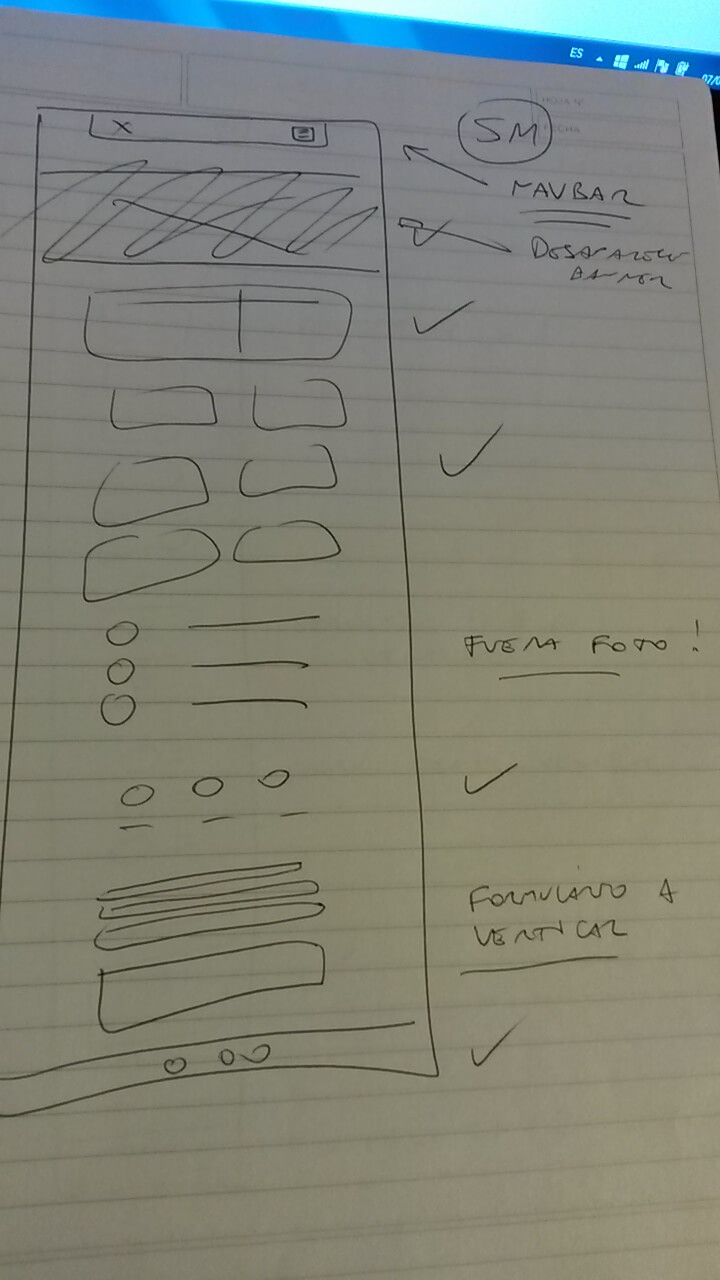 ES
07/0
HOJA Nº
FECHA
SM
NAVBAR
DESAPARECE
BANNER
FUERA FOTO!
FORMULARIO A
VERTICAL